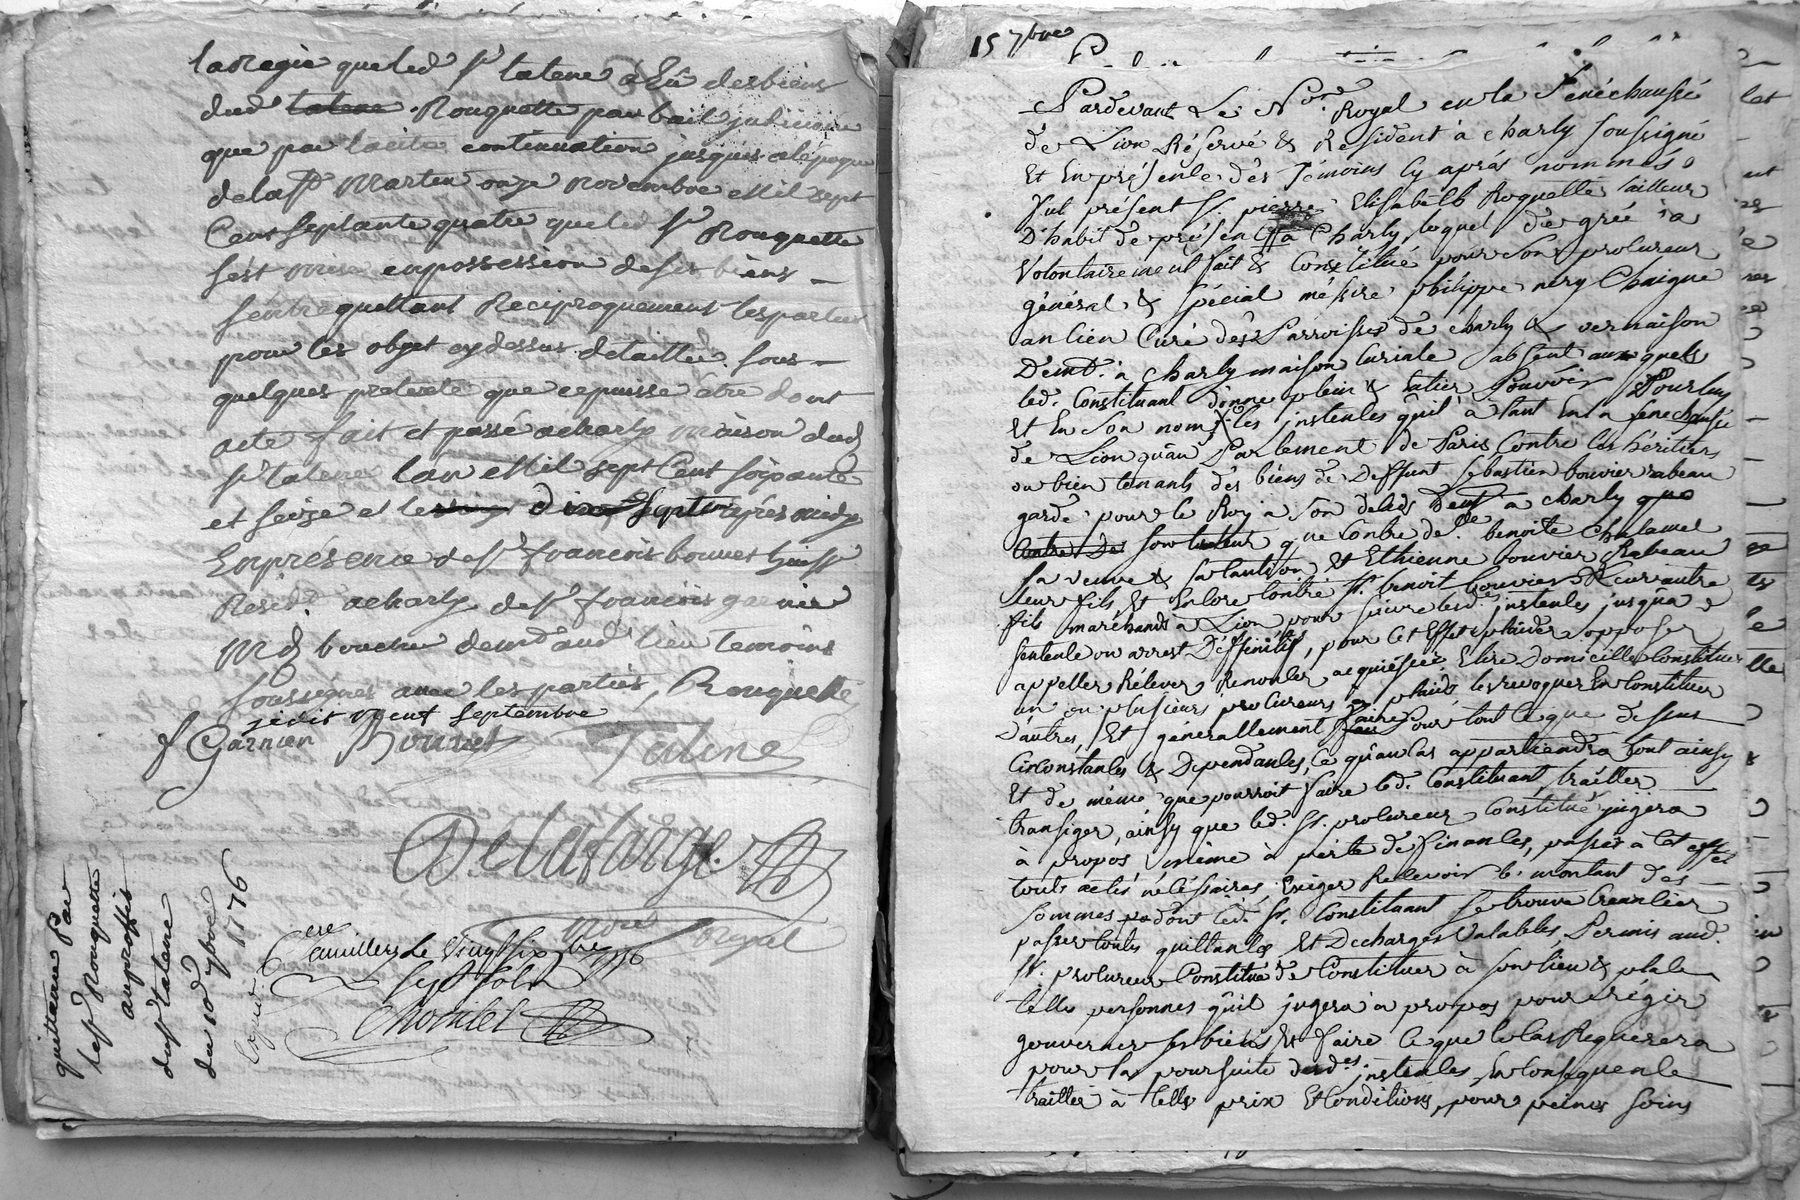 la Regie que led Sr talene à Eû des biens
dud talene Rouquette par bail judiciaire
que par tacite continuation jusques a lépoque
de la St Martin onze Novembre Mil sept
Cent septante quatre que led Sr Rouquette
sest mis en possession de ses biens
sentrequittant Reciproquement les parties
pour les objet cydessus detaillés sous
quelques pretexte que ce puisse être dont
acte fait et passé a charly maison dud
Sr talene lan Mil sept Cent soixante
et seize et le dix sept après midy
En presence de Sr francois bouvet huissr
Residt a charly de Sr francois garnier
Md boucher demt aud lieu temoins
soussignés avec les parties, Rouquette
je dit neuf septembre
f Garnier Bouvet Talene
Delafarge
Nore Royal
Contre
à millery Le Vingt six 7bre 1776
sept sols
Chomlet
quittance Par
le Sr Rouquette
au proffit
du Sr talene
du 10e 7bre
1776
15 7bre
Pardevant Le Nore Royal en la Sénéchaussé
de Lion Réservé & Résident à charly soussigné
Et En présence des Témoins Cy aprés nommés
fut présent Sr. pierre Elisabeth Roquette tailleur
D'habit de présent à Charly, lequel de gré à
Volontairement fait & Constitué pour son procureur
général & spécial méssire philippe nery Chaigne
ancien Curé des Parroisses de charly & vernaison
Demt. à charly maison Curiale absent auxquels
led. Constituant donne plein & entier Pouvoir Pour luy
Et En son nom les instences quil à tant En la senechaussé
de Lion qu'au Parlement de Paris Contre les héritiers
ou bien tenants des biens de Deffunt sebastien bouvier rabeau
garde pour le Roy à son deceds Demt à charly que
Contre De son que Contre de. lle benoite Chalamel
sa veuve & sa Caution Et Ethienne bouvier Rabeau
leur fils, Et Encore Contre Sr. benoit bouvier leur autre
fils marchands à Lion pour suivre lesd. instences jusqua
sentence ou arrest Déffinitifs, pour Cet Effet plaider opposer
appeller Rélever Renoncer acquiéscer Elire Domicille Constituer
un ou plusieurs procureurs les revoquer En Constituer
D'autres, Et généralement faire Pour tout Ce que dessus
Circonstances & Dependances, Ce qu'au Cas appartiendra tout ainsy
Et de même que pourroit faire led. Constituant, traitter
transiger, ainsy que led. Sr. procureur Constitué jugera
à propos même à perte de finances, passer à Cet effet
touts actes nécéssaires, Exiger Recevoir le montant des
sommes dont led. Sr. Constituant se trouve Creancier
passer toutes quittances Et Decharges Valables, Permis aud.
Sr. procureur Constitué de Constituer à son lieu & place
telle personnes qu'il jugera à propos pour régir
gouverner ses biens Et faire Ce que le Cas Requerera
pour la poursuite desd. instences, En Consequence
traitter à tells prix & Conditions, pour peines soins